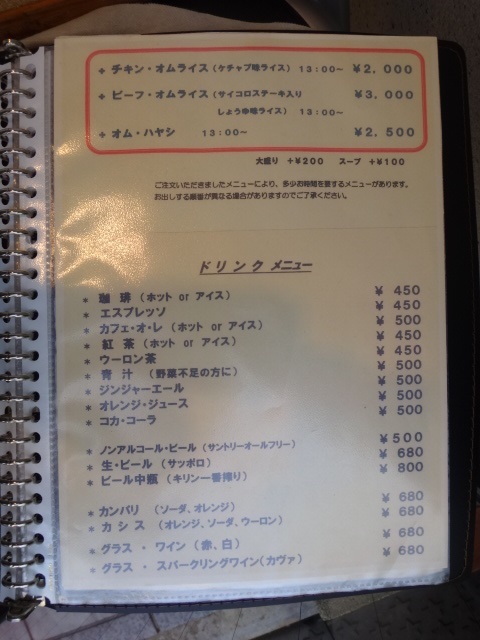 + チキン・オムライス (ケチャップ味ライス) 13:00~ ¥2,000
+ ビーフ・オムライス (サイコロステーキ入り ¥3,000
しょうゆ味ライス) 13:00~
+ オム・ハヤシ 13:00~ ¥2,500
大盛り +¥200 スープ +¥100
ご注文いただきましたメニューにより、多少お時間を要するメニューがあります。
お出しする順番が異なる場合がありますのでご了承ください。
ドリンク メニュー
* 珈琲 (ホット or アイス) ¥ 450
* エスプレッソ ¥ 450
* カフェ・オ・レ (ホット or アイス) ¥ 500
* 紅茶 (ホット or アイス) ¥ 450
* ウーロン茶 ¥ 450
* 青汁 (野菜不足の方に) ¥ 500
* ジンジャーエール ¥ 500
* オレンジ・ジュース ¥ 500
* コカ・コーラ ¥ 500
* ノンアルコール・ビール (サントリーオールフリー) ¥500
* 生・ビール (サッポロ) ¥ 680
* ビール中瓶 (キリン一番搾り) ¥ 800
* カンパリ (ソーダ、オレンジ) ¥ 680
* カシス (オレンジ、ソーダ、ウーロン) ¥ 680
* グラス・ワイン (赤、白) ¥ 680
* グラス・スパークリングワイン(カヴァ) ¥ 680